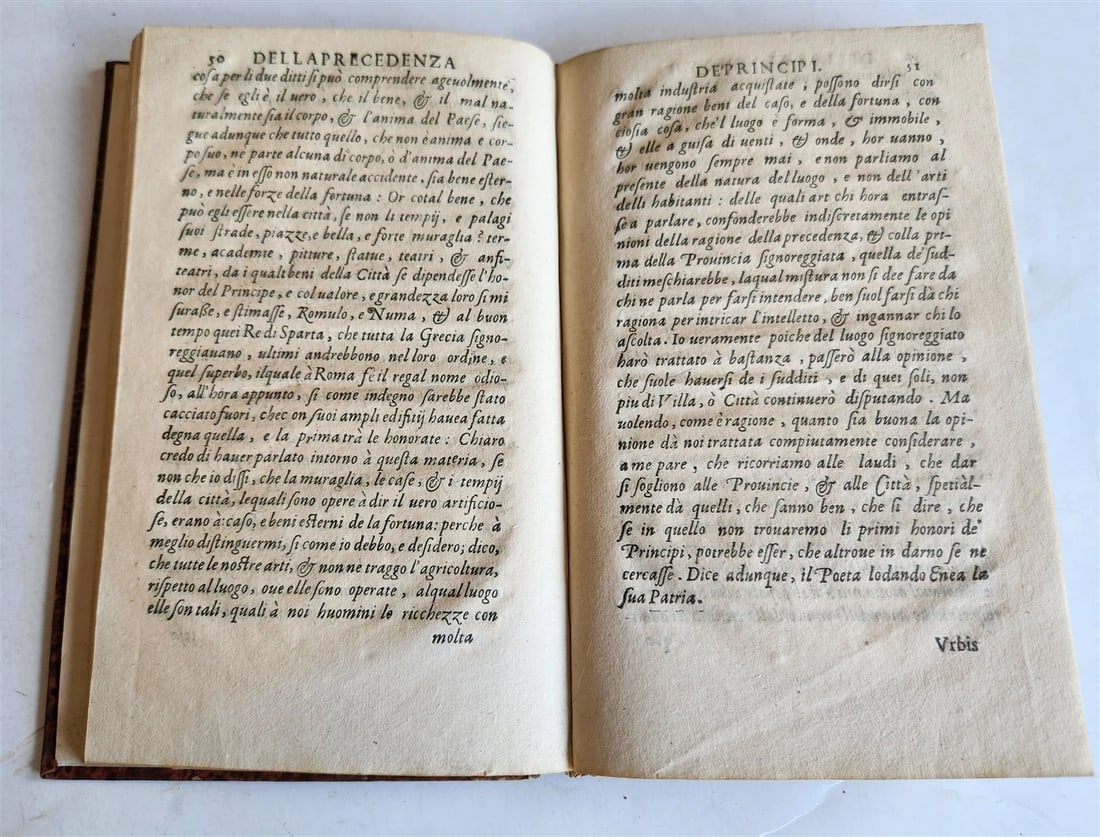 50 DELLA PRECEDENZA
cosa per li due ditti si può comprendere ageuolmente,
che se egli è il uero, che il bene, & il mal na-
turalmente sia il corpo, & l'anima del Paese, sie-
gue adunque che tutto quello, che non è anima e cor-
po suo, ne parte alcuna di corpo, ò d'anima del Pae-
se, ma è in esso non naturale accidente, sia bene ester-
no, e nelle forze della fortuna: Or cotal bene, che
può egli essere nella città, se non li tempij, e palagi
suoi strade, piazze, e bella, e forte muraglia? ter-
me, academie, pitture, statue, teatri, & anfi-
teatri, da i quali beni della Città se dipendesse l'ho-
nor del Principe, e col ualore, e grandezza loro si mi
suraße, e stimasse, Romulo, e Numa, & al buon
tempo quei Re di Sparta, che tutta la Grecia signo-
reggiauano, ultimi andrebbono nel loro ordine, e
quel superbo, il quale à Roma fè il regal nome odio-
so, all'hora appunto, si come indegno sarebbe stato
cacciato fuori, che con suoi ampli edifitij hauea fatta
degna quella, e la prima trà le honorate: Chiaro
credo di hauer parlato intorno à questa materia, se
non che io dissi, che la muraglia, le case, & i tempij
della città, lequali sono opere à dir il uero artificio-
se, erano à caso, e beni esterni de la fortuna: perche à
meglio distinguermi, si come io debbo, e desidero; dico,
che tutte le nostre arti, & non ne traggo l'agricoltura,
rispetto al luogo, oue elle sono operate, al qual luogo
elle son tali, quali à noi huomini le ricchezze con
molta
DE' PRINCIPI. 51
molta industria acquistate; possono dirsi con
gran ragione beni del caso, e della fortuna, con
ciosia cosa, che'l luogo è forma, & immobile,
& elle a guisa di uenti, & onde, hor uanno,
hor uengono sempre mai, e non parliamo al
presente della natura del luogo, e non dell'arti
delli habitanti: delle quali art chi hora entras-
se a parlare, confonderebbe indiscretamente le opi
nioni della ragione della precedenza, & colla pri-
ma della Prouincia signoreggiata, quella de' sud-
diti meschiarebbe, laqual mistura non si dee fare da
chi ne parla per farsi intendere, ben suol farsi dà chi
ragiona per intricar l'intelletto, & ingannar chi lo
ascolta. Io ueramente poiche del luogo signoreggiato
harò trattato à bastanza, passerò alla opinione,
che suole hauersi de i sudditi, e di quei soli, non
piu di Villa, ò Città continuerò disputando. Ma
uolendo, come è ragione, quanto sia buona la opi-
nione dà noi trattata compiutamente considerare,
a me pare, che ricorriamo alle laudi, che dar
si sogliono alle Prouincie, & alle Città, spetiàl-
mente dà quelli, che sanno ben, che si dire, che
se in quello non trouaremo li primi honori de'
Principi, potrebbe esser, che altroue in darno se ne
cercasse. Dice adunque, il Poeta lodando Enea la
sua Patria.
Vrbis